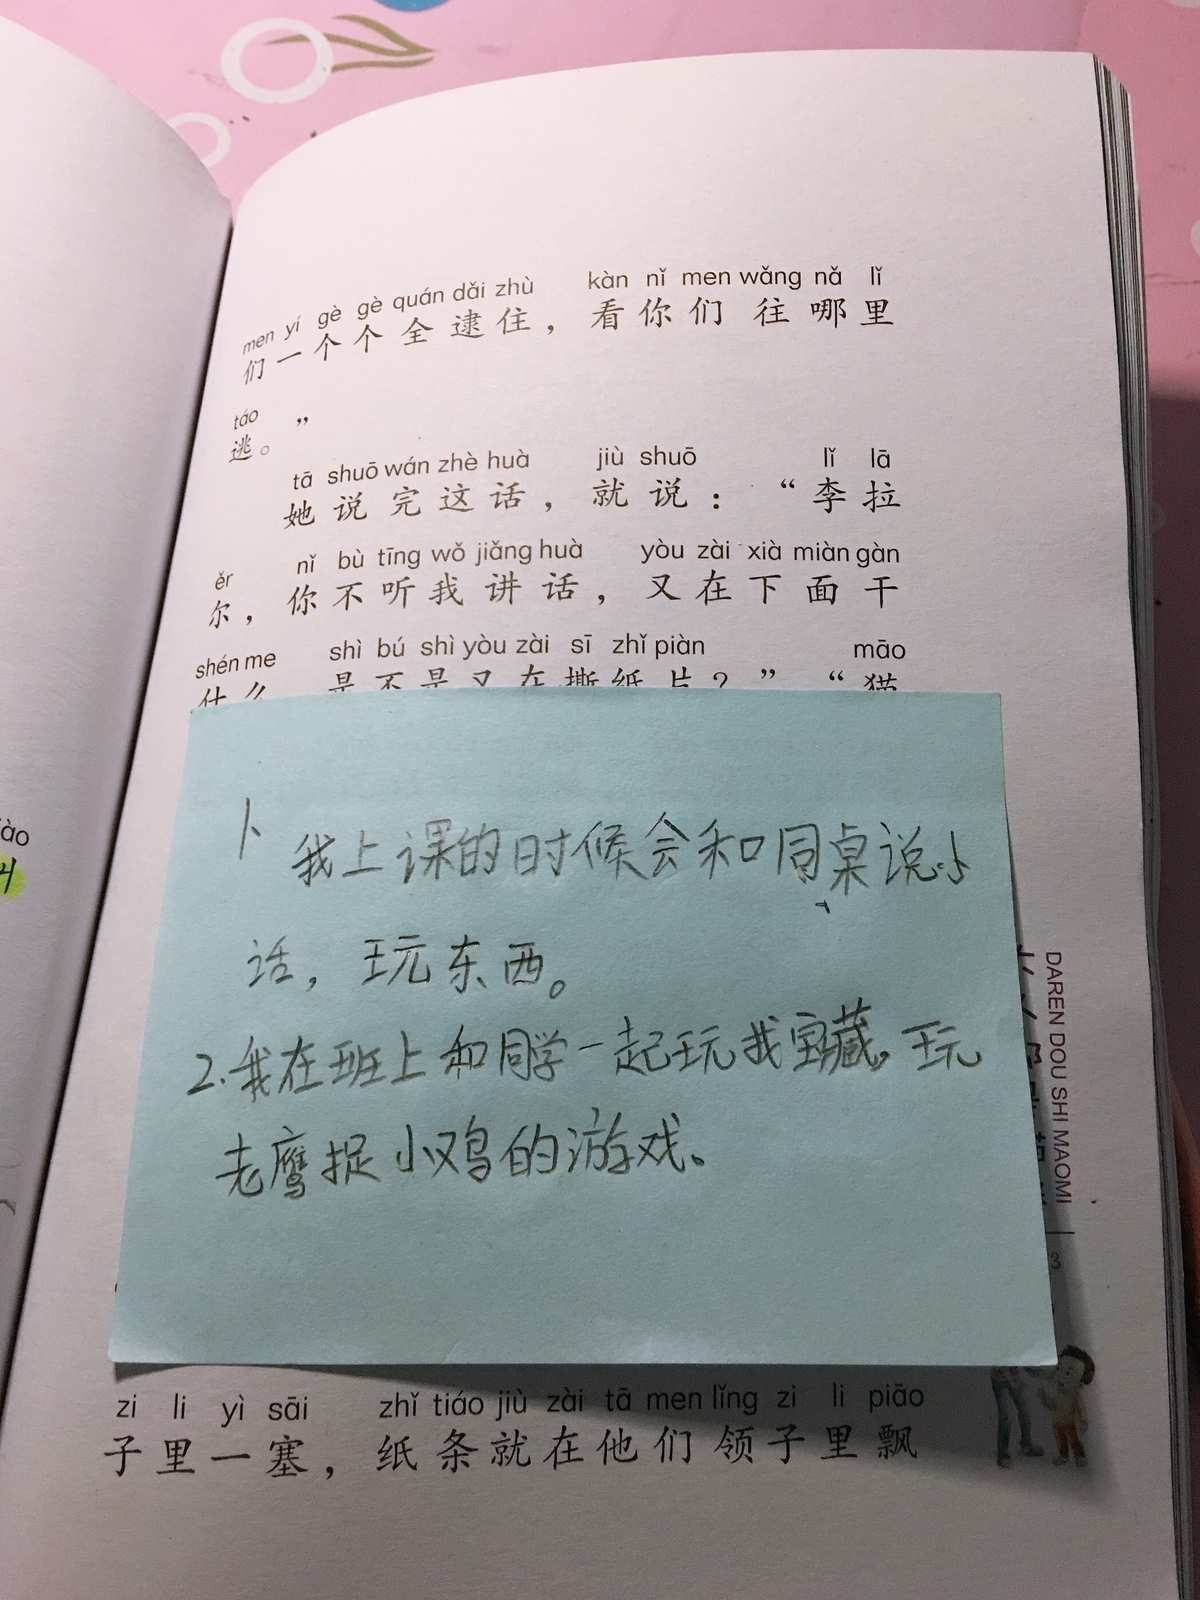 men yí gè gè quán dǎi zhù kàn nǐ men wǎng nǎ lǐ
们一个个全逮住，看你们往哪里
táo
逃。”
tā shuō wán zhè huà jiù shuō lǐ lā
她说完这话，就说：“李拉
ěr nǐ bù tīng wǒ jiǎng huà yòu zài xià miàn gàn
尔，你不听我讲话，又在下面干
shén me shì bú shì yòu zài sī zhǐ piàn māo
什么，是不是又在撕纸片？”“猫
1、我上课的时候会和同桌说小
话，玩东西。
2.我在班上和同学一起玩我宝藏，玩
老鹰捉小鸡的游戏。
zi li yì sāi zhǐ tiáo jiù zài tā men lǐng zi li piāo
子里一塞，纸条就在他们领子里飘
DAREN DOU SHI MAOMI
3
iào
叫